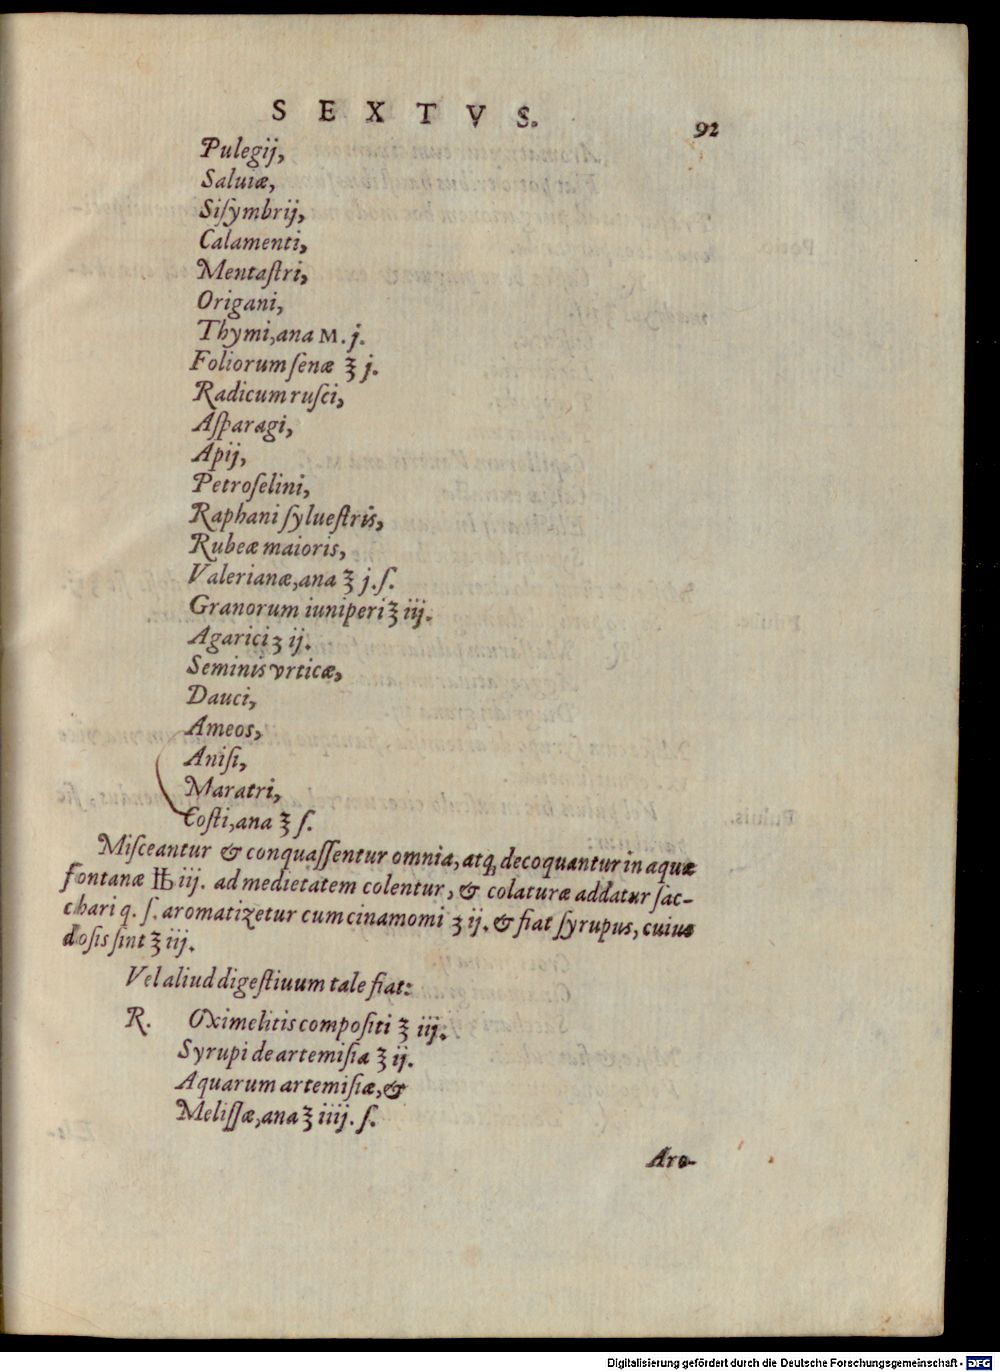 SEXTVS. 92
Pulegij,
Saluiæ,
Siſymbrij,
Calamenti,
Mentaſtri,
Origani,
Thymi, ana M. j.
Foliorum ſenæ ʒ j.
Radicum ruſci,
Aſparagi,
Apij,
Petroſelini,
Raphani ſylueſtris,
Rubeæ maioris,
Valerianæ, ana ʒ j. ſ.
Granorum iuniperi ʒ iij.
Agarici ʒ ij.
Seminis vrticæ,
Dauci,
Ameos,
Aniſi,
Maratri,
Coſti, ana ʒ ſ.
Miſceantur & conquaſſentur omnia, atq; decoquantur in aquæ
fontanæ ℔ iij. ad medietatem colentur, & colaturæ addatur ſac-
chari q. ſ. aromatizetur cum cinamomi ʒ ij. & fiat ſyrupus, cuius
doſis ſint ʒ iij.
Vel aliud digeſtiuum tale fiat:
R. Oximelitis compoſiti ʒ iij.
Syrupi de artemiſia ʒ ij.
Aquarum artemiſiæ, &
Meliſſæ, ana ʒ iiij. ſ.
Aro-
Digitalisierung gefördert durch die Deutsche Forschungsgemeinschaft - DFG